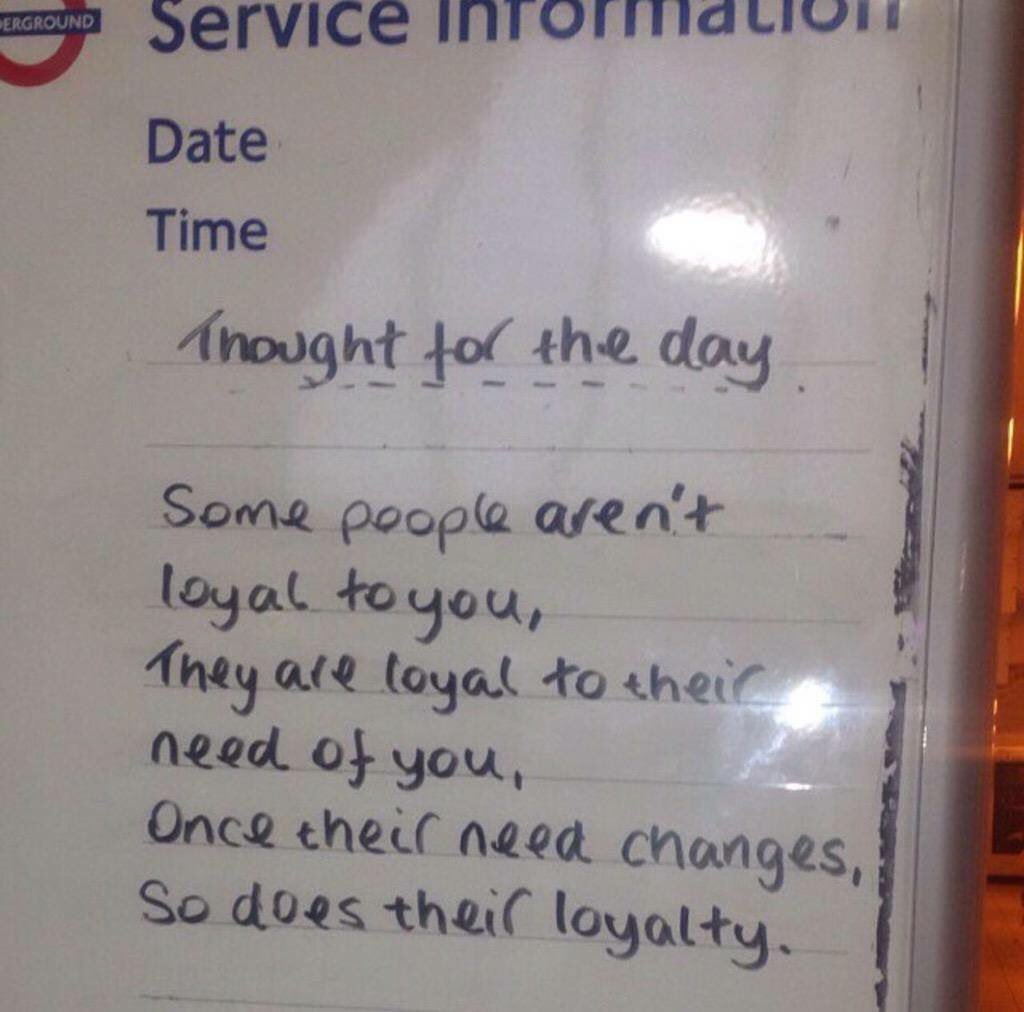 ERGROUND
Service Information
Date
Time
Thought for the day
Some people aren't
loyal to you,
They are loyal to their
need of you,
Once their need changes,
So does their loyalty.